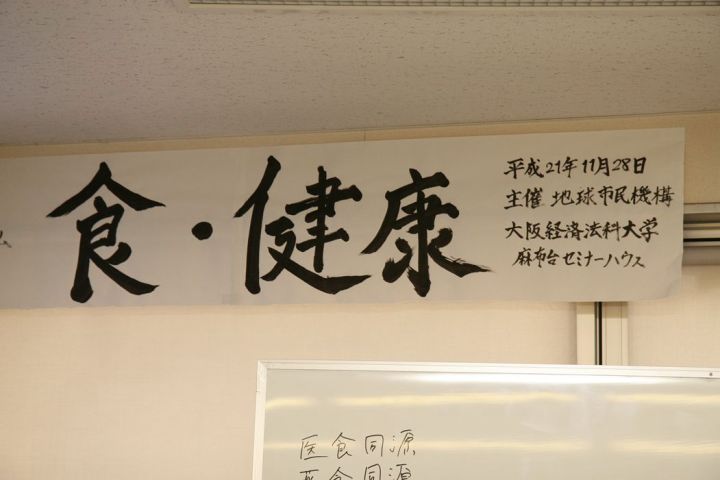 食・健康
平成21年11月28日
主催 地球市民機構
大阪経済法科大学
麻布台セミナーハウス
医食同源
薬食同源